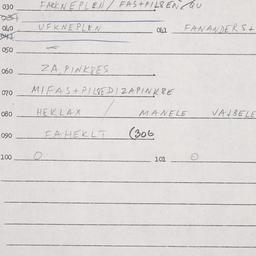 030 FAKKNEPLEN / FASTPILSEN, QU
040 UFKNEPLEN 041 FANANDERS+
050 -
060 ZA, PINKBES
070 MIFAS+PILSEDIZAPINKBE
080 HEKLAX / MANELE VAJBELE
090 FAHEKLT (306
100 0 101 0